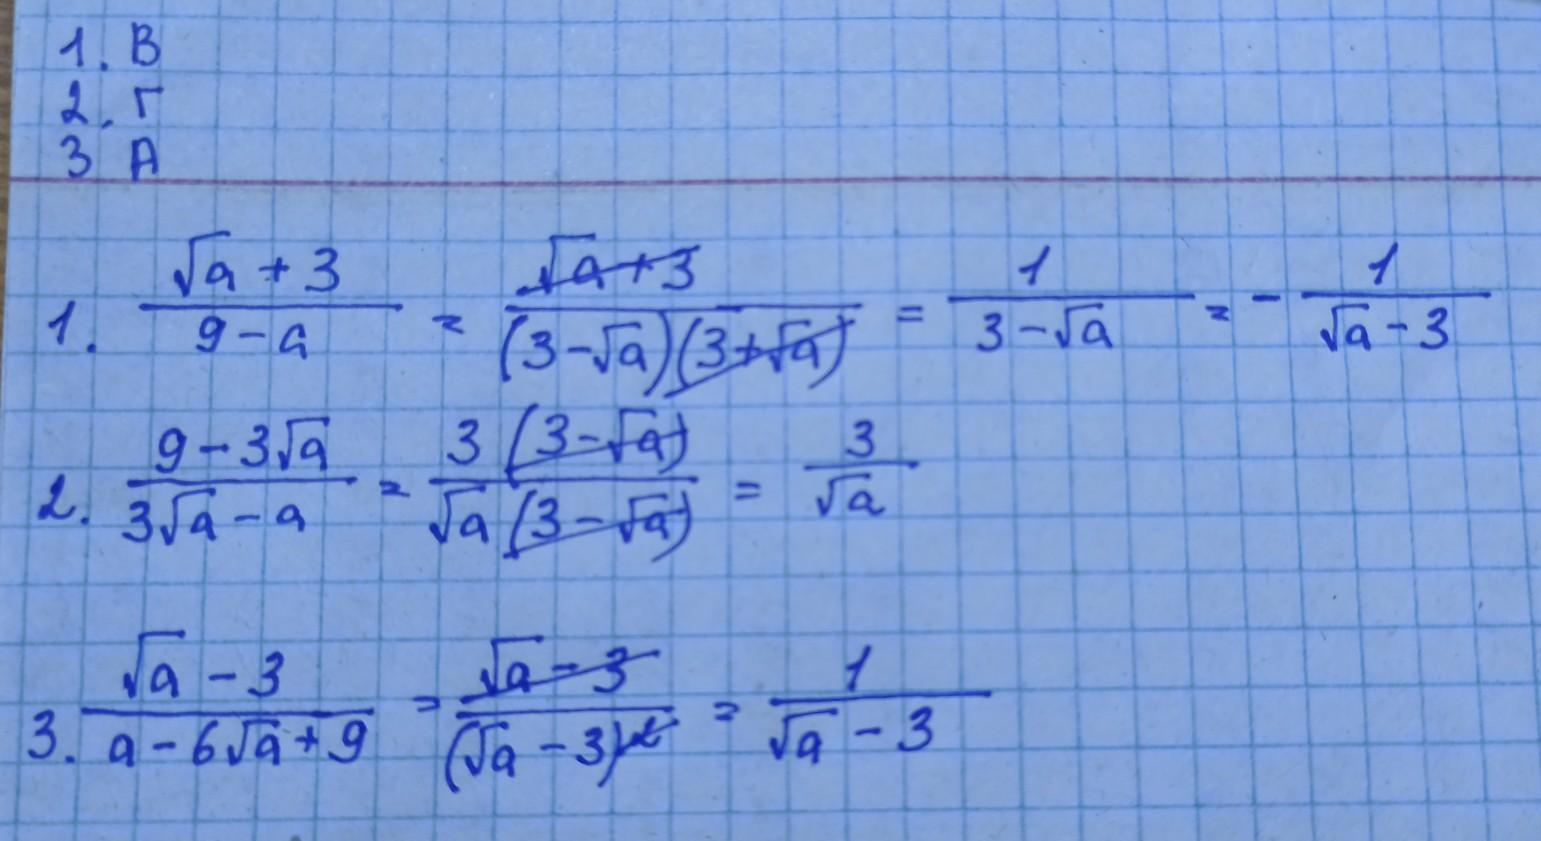 1. В
2. Г
3 А
1. (√a + 3)/(9 - a) = (√a + 3)/((3 - √a)(3 + √a)) = 1/(3 - √a) = - 1/(√a - 3)
2. (9 - 3√a)/(3√a - a) = (3(3 - √a))/(√a(3 - √a)) = 3/√a
3. (√a - 3)/(a - 6√a + 9) = (√a - 3)/((√a - 3)²) = 1/(√a - 3)